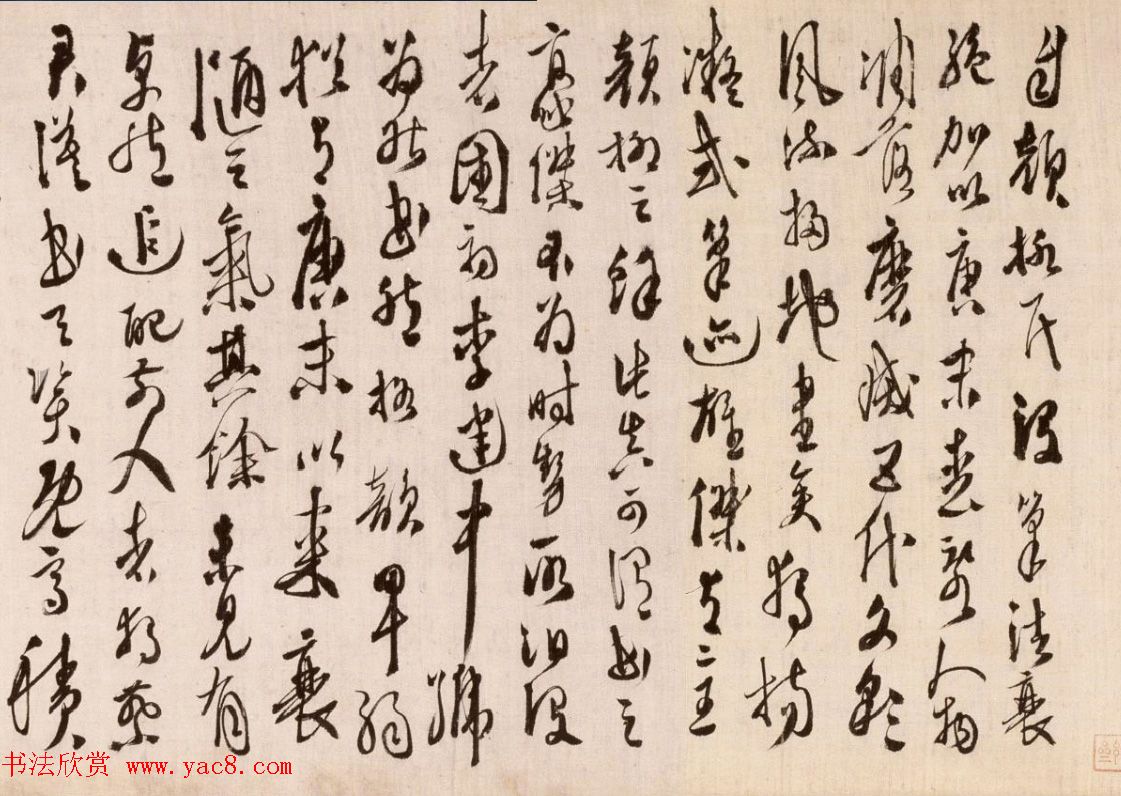 自顏柳氏沒筆法衰
絕加以唐末喪亂人物
凋落磨滅五代文采
風流掃地盡矣獨楊
凝式筆迹雄傑有二王
顏柳之餘此真可謂書之
豪傑不為時勢所汩沒
者國初李建中號
為能書然格韻卑弱
猶有唐末以來衰
陋之氣其餘未見有
卓然追配前人者獨蔡
君謨書天資既高積
书法欣赏 www.yac8.com